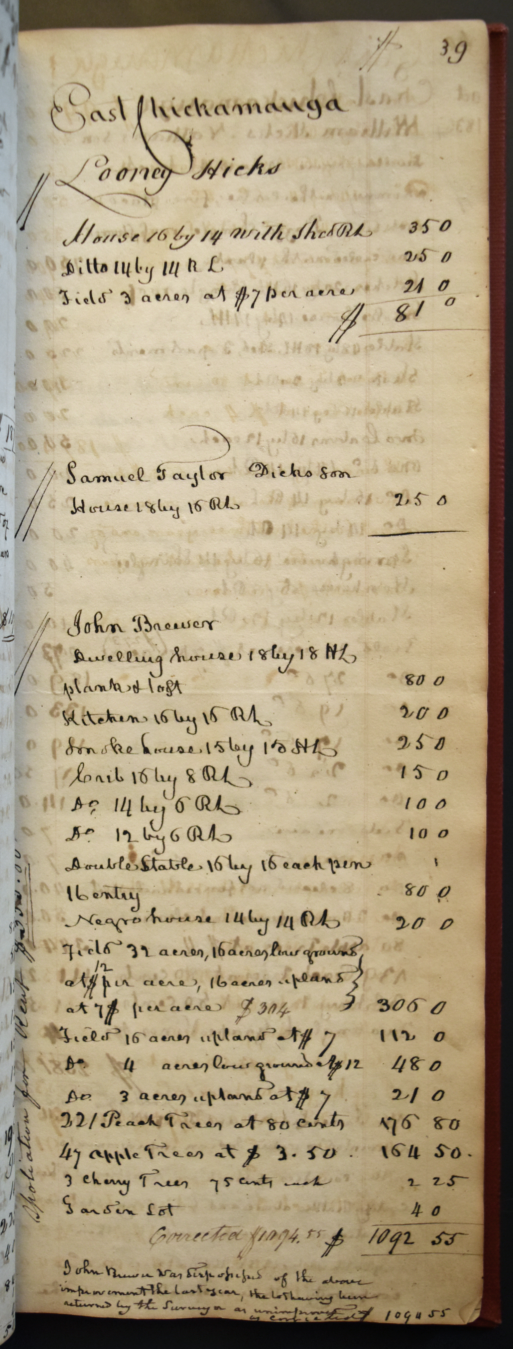 39
East Chickamauga
Looney Hicks
House 16 by 14 with Shed RL 35 0
Ditto 14 by 14 R L 25 0
Field 3 acres at $7 per acre 21 0
$ 81 0
Samuel Taylor Dickson
House 18 by 16 RL 25 0
John Brewer
Dwelling house 18 by 18 HL
plank & loft 80 0
Kitchen 16 by 16 RL 20 0
Smoke house 15 by 15 HL 25 0
Crib 16 by 8 RL 15 0
Do 14 by 6 RL 10 0
Do 12 by 6 RL 10 0
Double Stable 16 by 16 each pen
16 entry 80 0
Negro house 14 by 14 RL 20 0
Field 32 acres, 16 acres low ground
at $12 per acre, 16 acres upland
at 7$ per acre $304 306 0
Field 16 acres upland at $ 7 112 0
Do 4 acres low ground at $12 48 0
Do 3 acres upland at $ 7 21 0
221 Peach Trees at 80 cents 176 80
47 apple Trees at $ 3.50. 164 50.
3 Cherry Trees 75 cents each 2 25
Garden Lot 4 0
Corrected $1094.55 $ 1092 55
John Brewer was dispossessed of the above
improvement the last year, the lot having been
returned by the Surveyor as unimproved
as corrected $ 1094 55
Spoliation for Rent